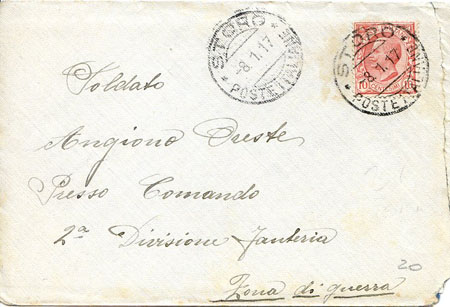 STORO
8.1.17
POSTE ITALIANE
STORO
8.1.17
POSTE
10
Soldato
Angiono Oreste
Presso Comando
2ª Divisione Fanteria
Zona di guerra
20